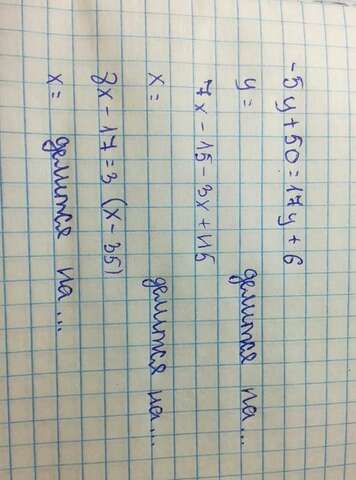 -5y+50=17y+6
y= делится на...
7x-15-3x+115
x= делится на...
8x-17=3(x-35)
x= делится на...